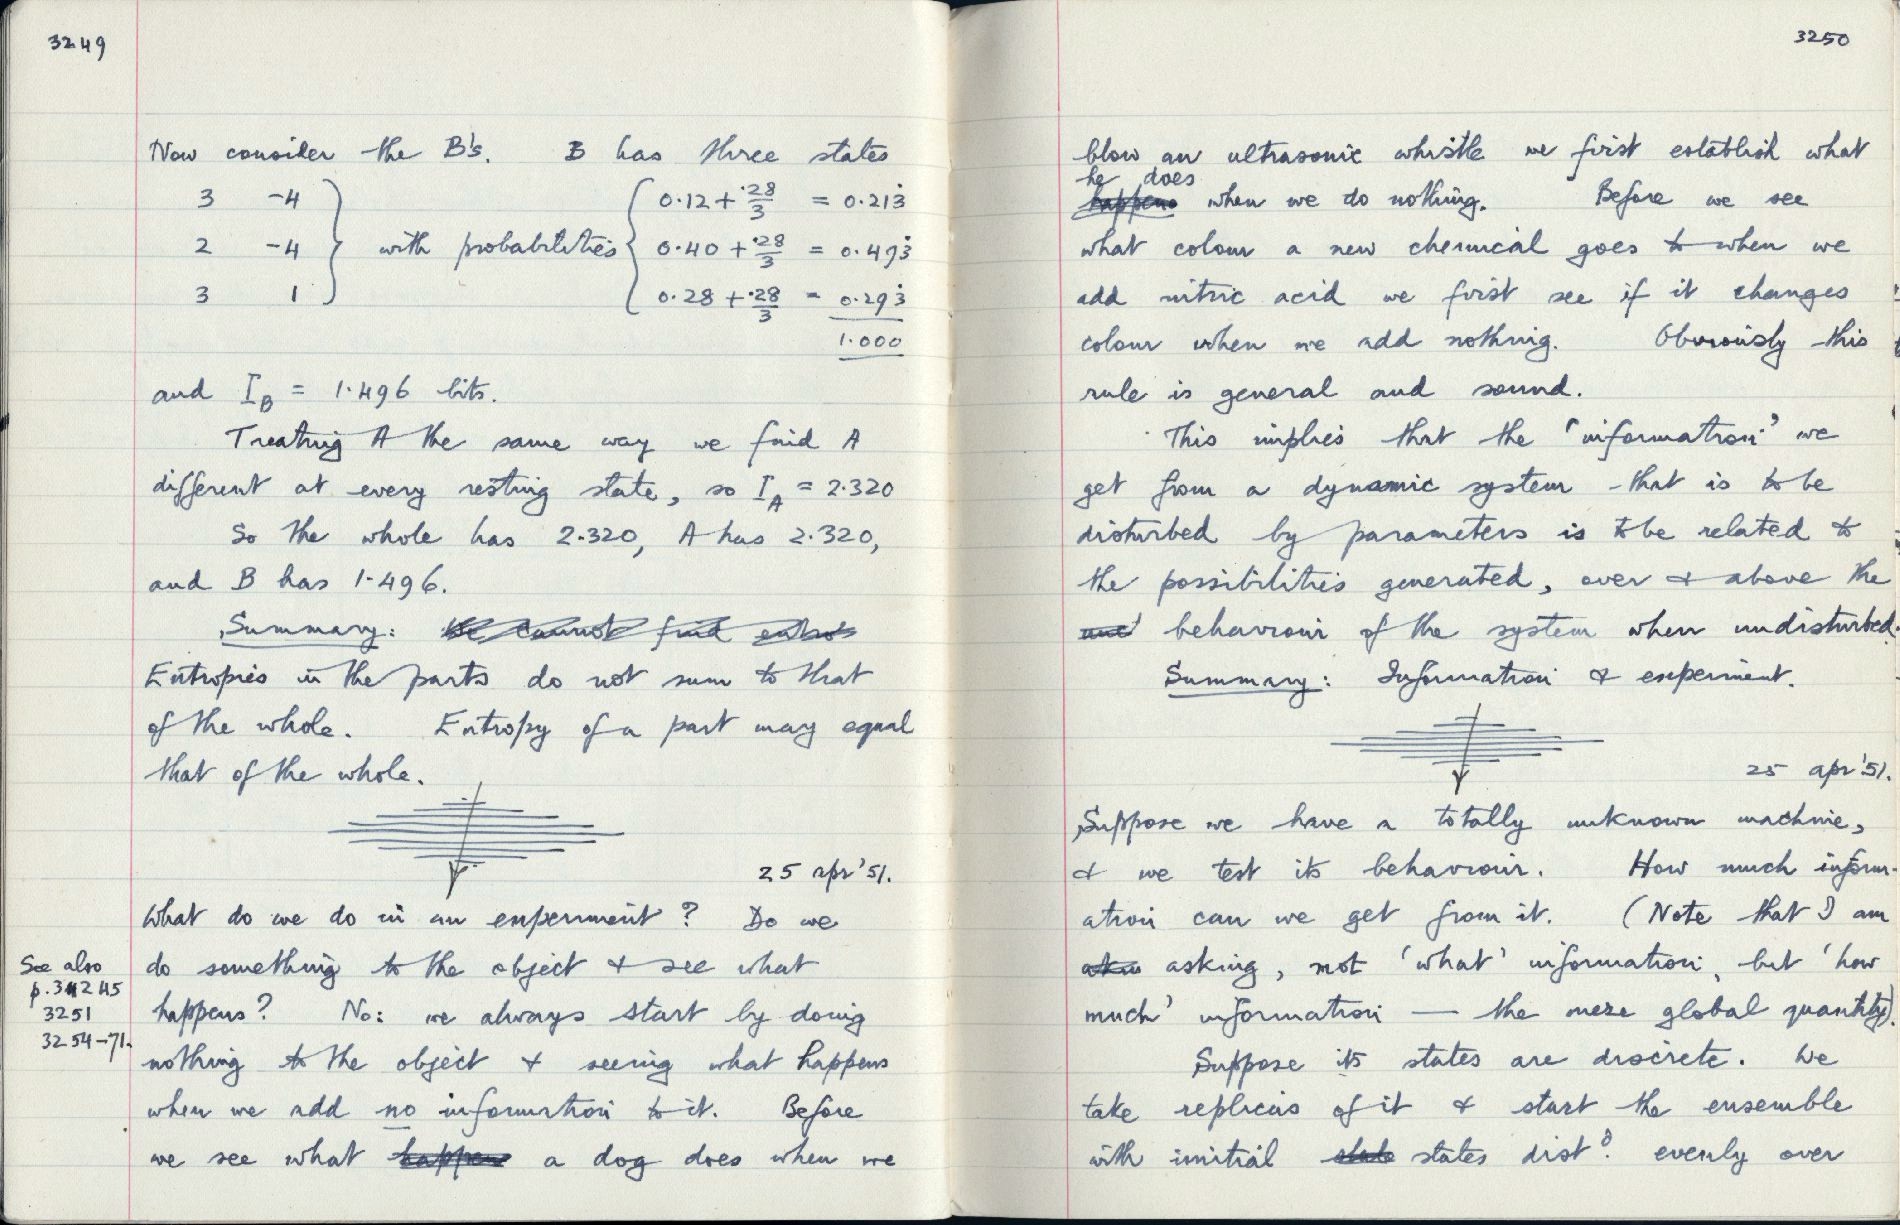 3249
Now consider the B's. B has three states
3 -4 0.12 + .28/3 = 0.213̇
2 -4 with probabilities 0.40 + .28/3 = 0.493̇
3 1 0.28 + .28/3 = 0.293̇
1.000
and I_B = 1.496 bits.
Treating A the same way we find A
different at every resting state, so I_A = 2.320
So the whole has 2.320, A has 2.320,
and B has 1.496.
Summary: We cannot find
Entropies in the parts do not sum to that
of the whole. Entropy of a part may equal
that of the whole.
25 apr '51.
What do we do in an experiment? Do we
do something to the object & see what
happens? No: we always start by doing
nothing to the object & seeing what happens
when we add no information to it. Before
we see what happens a dog does when we
See also
3251
3254-71.
3250
blow an ultrasonic whistle we first establish what
he does
happens when we do nothing. Before we see
what colour a new chemical goes to when we
add nitric acid we first see if it changes
colour when we add nothing. Obviously this
rule is general and sound.
This implies that the 'information' we
get from a dynamic system that is to be
disturbed by parameters is to be related to
the possibilities generated, over & above the
behaviour of the system when undisturbed.
Summary: Information & experiment.
25 apr '51.
Suppose we have a totally unknown machine,
& we test its behaviour. How much inform-
ation can we get from it. (Note that I am
asking, not 'what' information, but 'how
much' information — the mere global quantity).
Suppose its states are discrete. We
take replicas of it & start the ensemble
with initial state states dist^d. evenly over